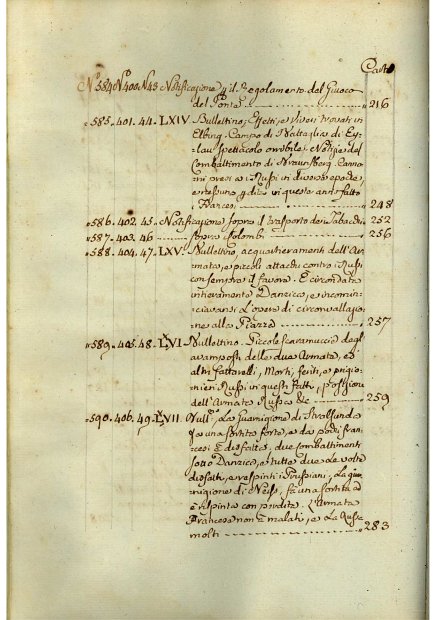 Carte
N° 584 N° 400 N 43 Notificazione p il Regolamento del Giuoco
del Ponte 216
585. 401. 44. LXIV Bullettino, Effetti, e Viveri trovati in
Elbing. Campo di Battaglia di Ey-
lau spettacolo orribile. Notizie del
Combattimento di Braunsberg. Canno
ni presi a i Russi in diverse epoche
in questo anno fatto
Francesi 248
586. 402. 45. Notificazione sopra il trasporto dei Tabacchi 252
587. 403. 46 sopra i Colombi 256
588. 404. 47. LXV. Bullettino, acquartieramenti dell'Ar-
mata, e piccoli attacchi contro i Russi
con sempre il favore. È circondata
intieramente Danzica, e incomin-
ciavansi l'opere di circonvallazio
ne alla Piazza 257
589. 405. 48. LXVI Bullettino. Piccole scaramuccie degl'
avamposti delle due Armate, ed
altri fattarelli, Morti, feriti, e prigio-
nieri Russi in questi fatti, posizioni
dell'Armata Russa &c 259
590. 406. 49. LXVII. Bull. La Guarnigione di Stralsunda
fa una sortita forte, e da pochi fran-
cesi è disfatta, due combattimenti
sotto Danzica, e tutte due le volte
disfatti, e respinti i Prussiani, La guar
nigione di Neiss, fa una sortita ed
è respinta con perdita. L'Armata
Francese non à malati, e la Russa
molti 283